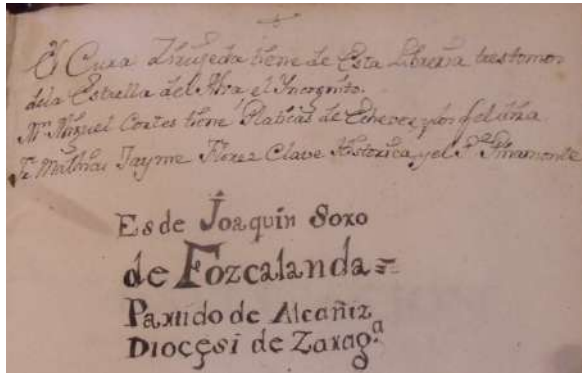 El Cura Zirujeda tiene de Esta Libreria tres tomos
dela Estrella del Alva el Yncognito.
Mn. Miguel Cortes tiene Platicas de Echevez, y don
Fr. Mathias Jayme Florez Clave Historica, y el Pe.
Es de Joaquin Soxo
de Fozcalanda=
Partido de Alcañiz
Diocesi de Zaragª.